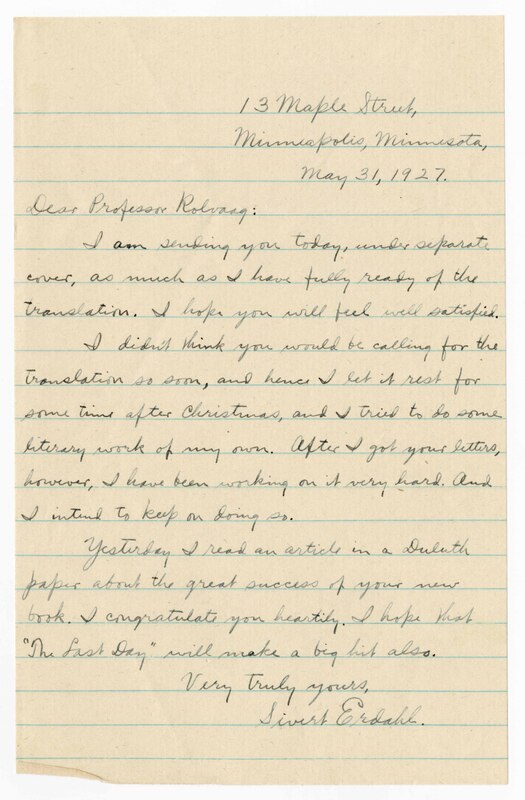 13 Maple Street,
Minneapolis, Minnesota,
May 31, 1927.
Dear Professor Rolvaag:
I am sending you today, under separate
cover, as much as I have fully ready of the
translation. I hope you will feel well satisfied.
I didn't think you would be calling for the
translation so soon, and hence I let it rest for
some time after Christmas, and I tried to do some
literary work of my own. After I got your letters,
however, I have been working on it very hard. And
I intend to keep on doing so.
Yesterday I read an article in a Duluth
paper about the great success of your new
book. I congratulate you heartily. I hope that
"The Last Day" will make a big hit also.
Very truly yours,
Sivert Erdahl.